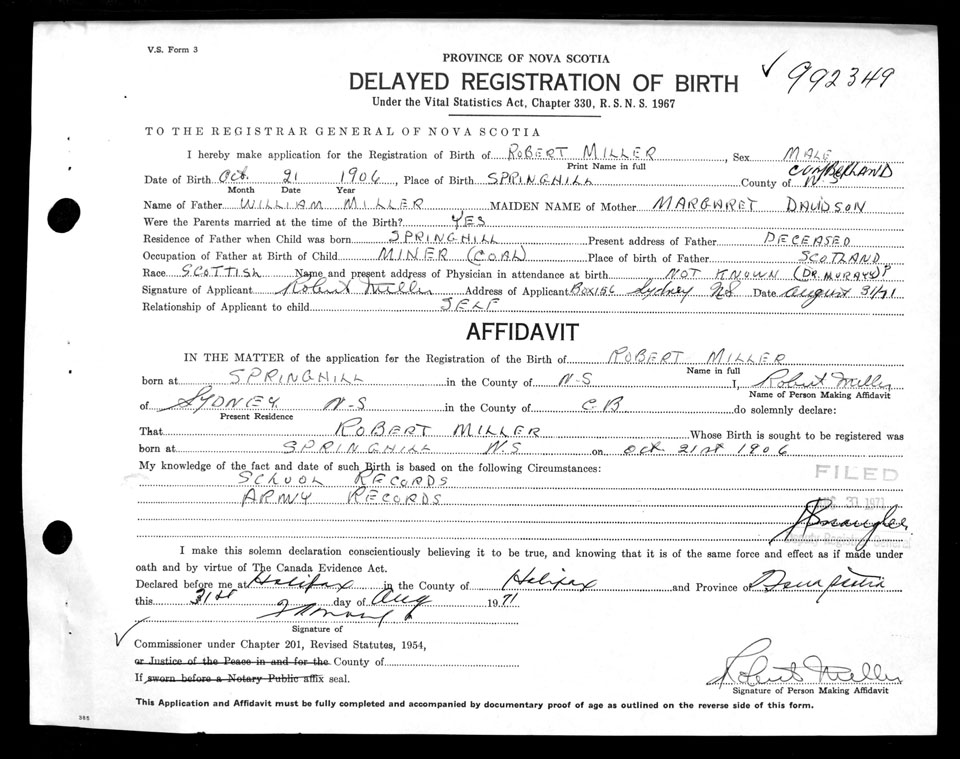 V.S. Form 3
PROVINCE OF NOVA SCOTIA
DELAYED REGISTRATION OF BIRTH
✓ 992349
Under the Vital Statistics Act, Chapter 330, R.S.N.S. 1967
TO THE REGISTRAR GENERAL OF NOVA SCOTIA
I hereby make application for the Registration of Birth of ROBERT MILLER, Sex MALE
Print Name in full
CUMBERLAND
Date of Birth Oct. 21 1906, Place of Birth SPRINGHILL County of N S
Month Date Year
Name of Father WILLIAM MILLER MAIDEN NAME of Mother MARGARET DAVIDSON
Were the Parents married at the time of the Birth? YES
Residence of Father when Child was born SPRINGHILL Present address of Father DECEASED
Occupation of Father at Birth of Child MINER (COAL) Place of birth of Father SCOTLAND
Race SCOTTISH Name and present address of Physician in attendance at birth NOT KNOWN (DR. MURRAY)?
Signature of Applicant Robert Miller Address of Applicant Box 156 Sydney NS Date August 31/71
Relationship of Applicant to child SELF
AFFIDAVIT
IN THE MATTER of the application for the Registration of the Birth of ROBERT MILLER
Name in full
born at SPRINGHILL in the County of N-S I, Robert Miller
Name of Person Making Affidavit
of SYDNEY N-S in the County of C B do solemnly declare:
Present Residence
That ROBERT MILLER Whose Birth is sought to be registered was
born at SPRINGHILL N.S on Oct 21st 1906
My knowledge of the fact and date of such Birth is based on the following Circumstances:
SCHOOL RECORDS
FILED
ARMY RECORDS
31 1971
Deputy Registrar General
I make this solemn declaration conscientiously believing it to be true, and knowing that it is of the same force and effect as if made under
oath and by virtue of The Canada Evidence Act.
Declared before me at Halifax in the County of Halifax and Province of Nova Scotia
this 31st day of Aug 1971
Signature of
✓ Commissioner under Chapter 201, Revised Statutes, 1954,
or Justice of the Peace in and for the County of
If sworn before a Notary Public affix seal.
Robert Miller
Signature of Person Making Affidavit
This Application and Affidavit must be fully completed and accompanied by documentary proof of age as outlined on the reverse side of this form.
385